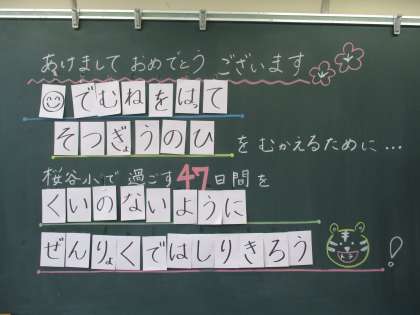 あけまして おめでとう ございます
でむねをはって
そつぎょうのひ を むかえるために…
桜谷小で 過ごす 47日間を
くいのないように
ぜんりょくではしりきろう トラ !